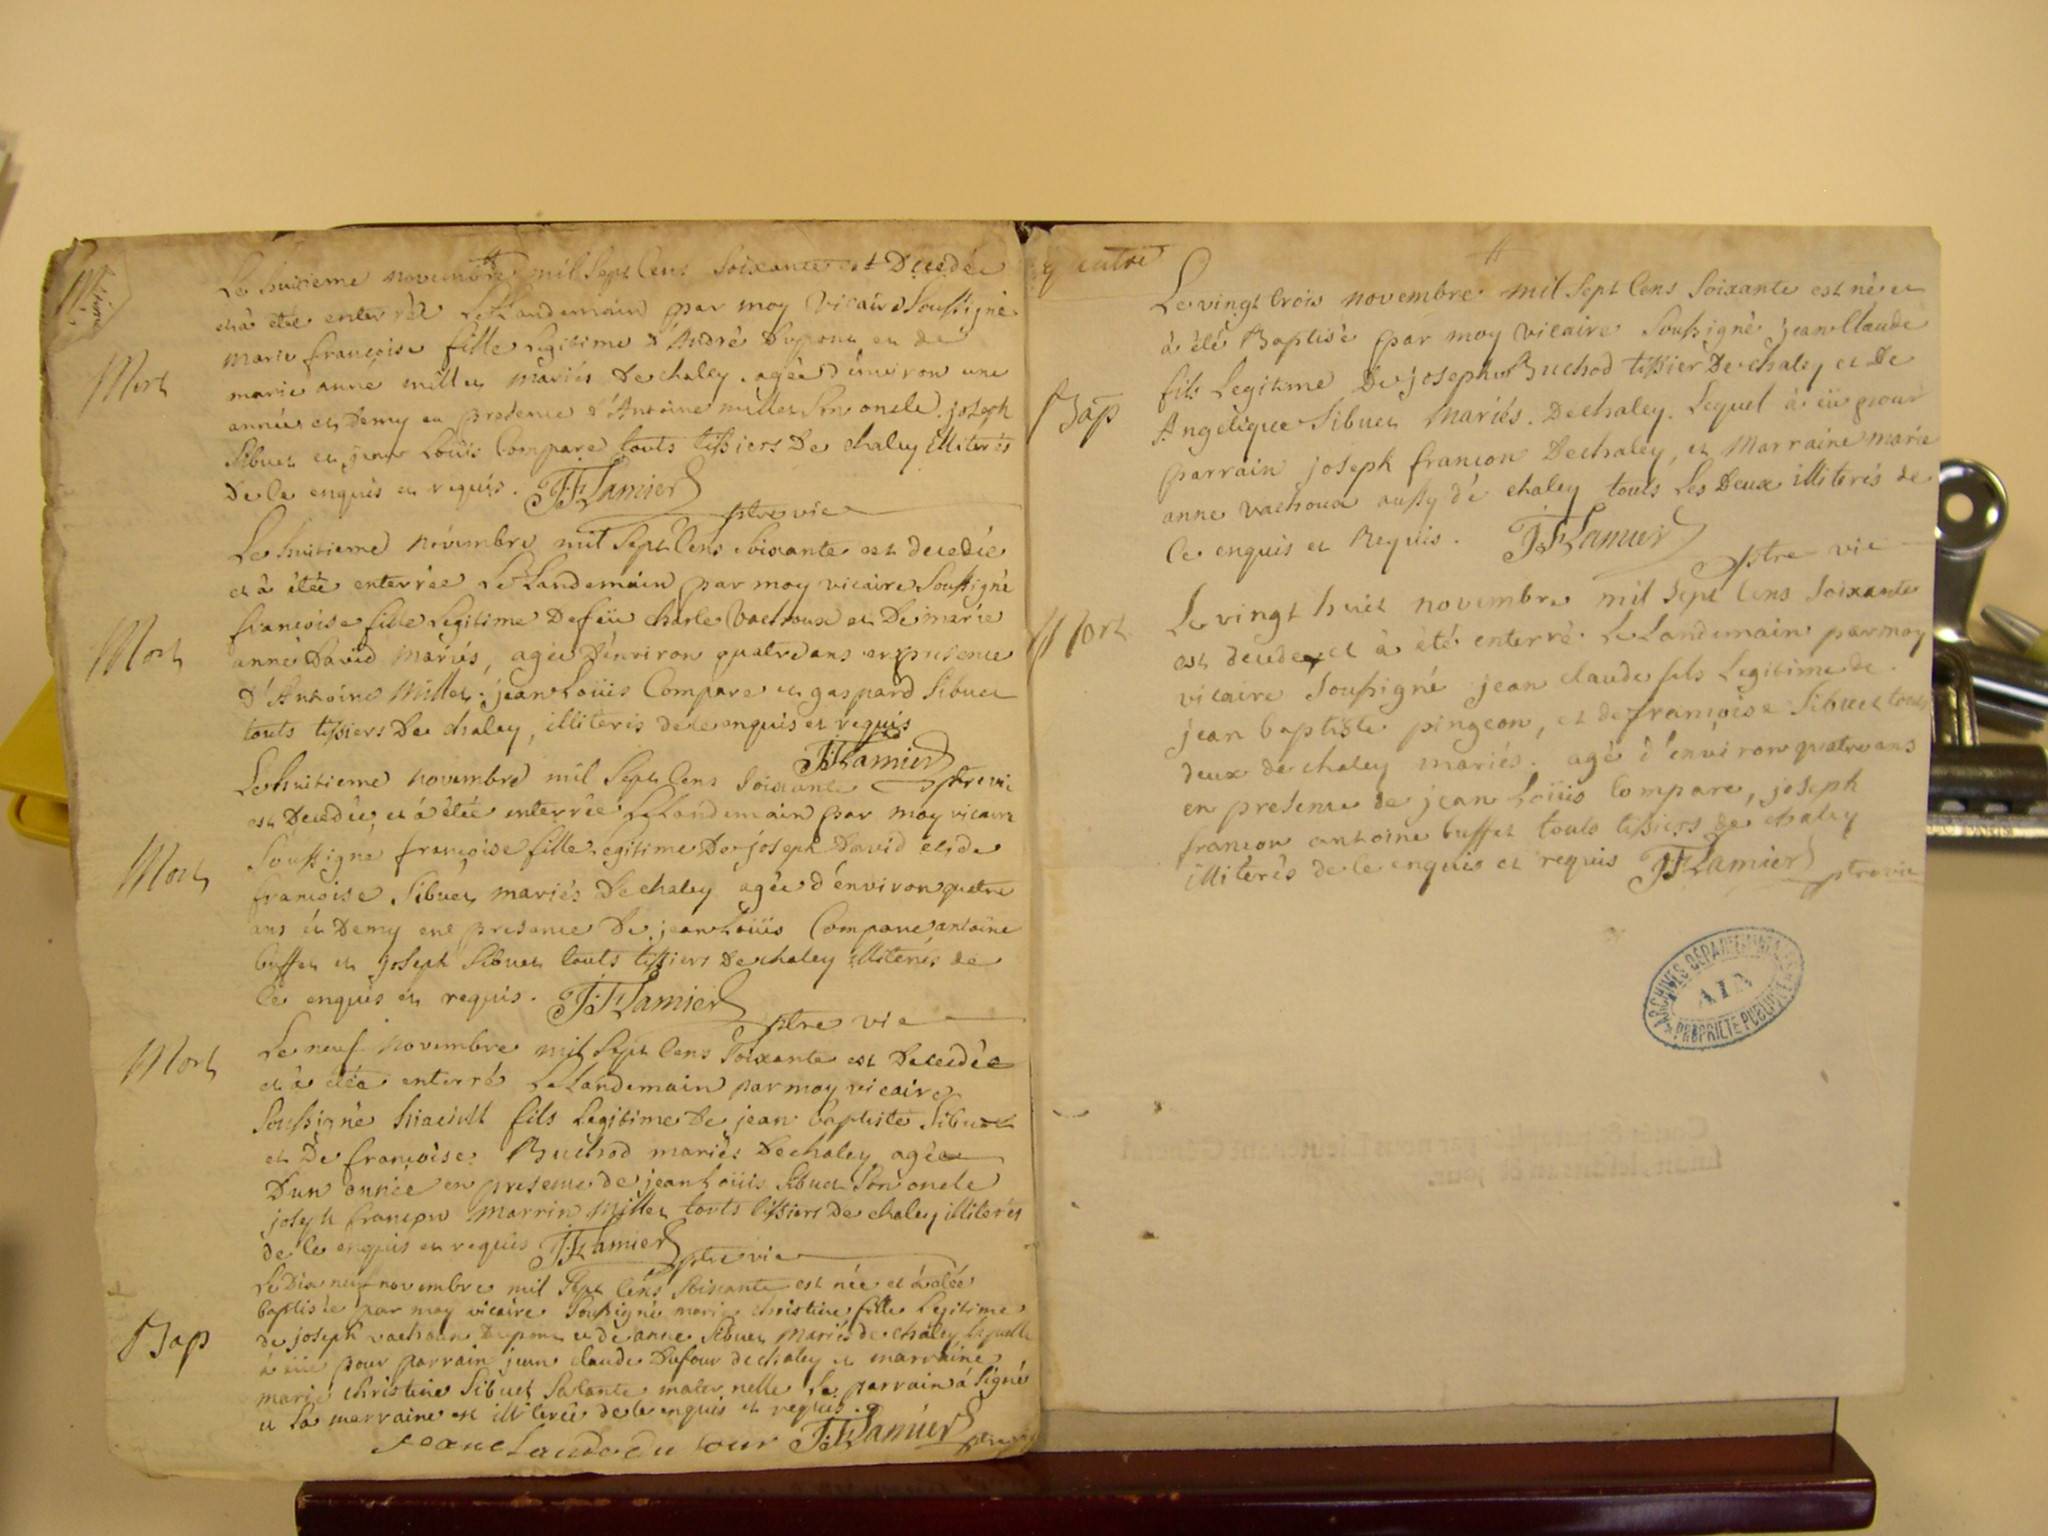 Le huitieme novembre mil Sept Cens Soixante est Decedée
et à eté enterrée Le Landemain par moy vicaire Soussigné
marie françoise fille legitime d'André Dupont et de
marie anne millet mariés De chaley. agée d'environ une
année et Demy en presence d'Antoine millet Son oncle. joseph
Sibuet et jean Loüis Compare touts tissiers De chaley illiterés
De ce enquis et requis. J:F:Lamier
ptre vic
Mort
Le huitieme novembre mil Sept Cens Soixante est decedée
et à étée enterrée Le Landemain par moy vicaire Soussigné
françoise fille Legitime De feu charle Vachoux et De marie
anne David mariés, agée D'environ quatre ans en presence
d'Antoine Millet. jean Loüis Compare et gaspard Sibuet
touts tissiers De chaley, illiteris de ce enquis et requis
J:F:Lamier
ptre vic
Mort
Le huitieme novembre mil Sept Cens Soixante
est Decedée, et à étée enterrée Le Landemain par moy vicaire
Soussigné françoise fille legitime De joseph David et de
françoise Sibuet mariés De chaley agée d'environ quatre
ans et Demy en presence De jean Loüis Compare antoine
buffet et joseph Sibuet touts tissiers De chaley illiterés de
ce enquis et requis. J:F:Lamier
ptre vic
Mort
Le neuf Novembre mil Sept Cens Soixante est Decedée
et à étée enterré Le Landemain par moy vicaire
Soussigné hiacint fils Legitime De jean baptiste Sibuet
et De françoise Buchod mariés De chaley agée
D'un année en presence de jean Loüis Sibuet Son oncle
joseph françon Marrin Millet touts tissiers De chaley illiterés
de ce enquis et requis J:F:Lamier
ptre vic
Mort
Le Dix neuf novembre mil Sept Cens Soixante est née et à étée
baptisée par moy vicaire Soussigné marie christine fille Legitime
de joseph vachoux Dupont et de anne Sibuet Mariés de chaley laquelle
à eüe pour parrain jean claude Dufour de chaley et marraine
marie christine Sibuet Sa tante maternelle Le parrain à Signé
et La marraine est illiterée de ce enquis et requis.
Bap
jean claude du four J:F:Lamier ptre
quatre
Le vingt trois novembre mil Sept Cens Soixante est né et
à été Baptisé par moy vicaire Soussigné jean Claude
fils Legitime De joseph Buchod tissier De chaley et De
Angelique Sibuet Mariés. De chaley. Lequel à eü pour
parrain joseph françon De chaley, et Marraine marie
anne vachoux aussy de chaley touts Les Deux illiterés de
ce enquis et Requis. J:F:Lamier
ptre vic
Bap
Le vingt huit novembre mil Sept Cens Soixante
est decedé et à été enterré Le Landemain par moy
vicaire Soussigné jean claude fils Legitime de
jean baptiste pingeon, et de françoise Sibuet touts
deux de chaley mariés. agé d'environ quatre ans
en presence de jean Loüis Compare, joseph
françon antoine buffet touts tissiers de chaley
illiterés de ce enquis et requis J:F:Lamier
ptre vic
Mort
ARCHIVES DÉPARTEMENTALES
AIN
PROPRIÉTÉ PUBLIQUE